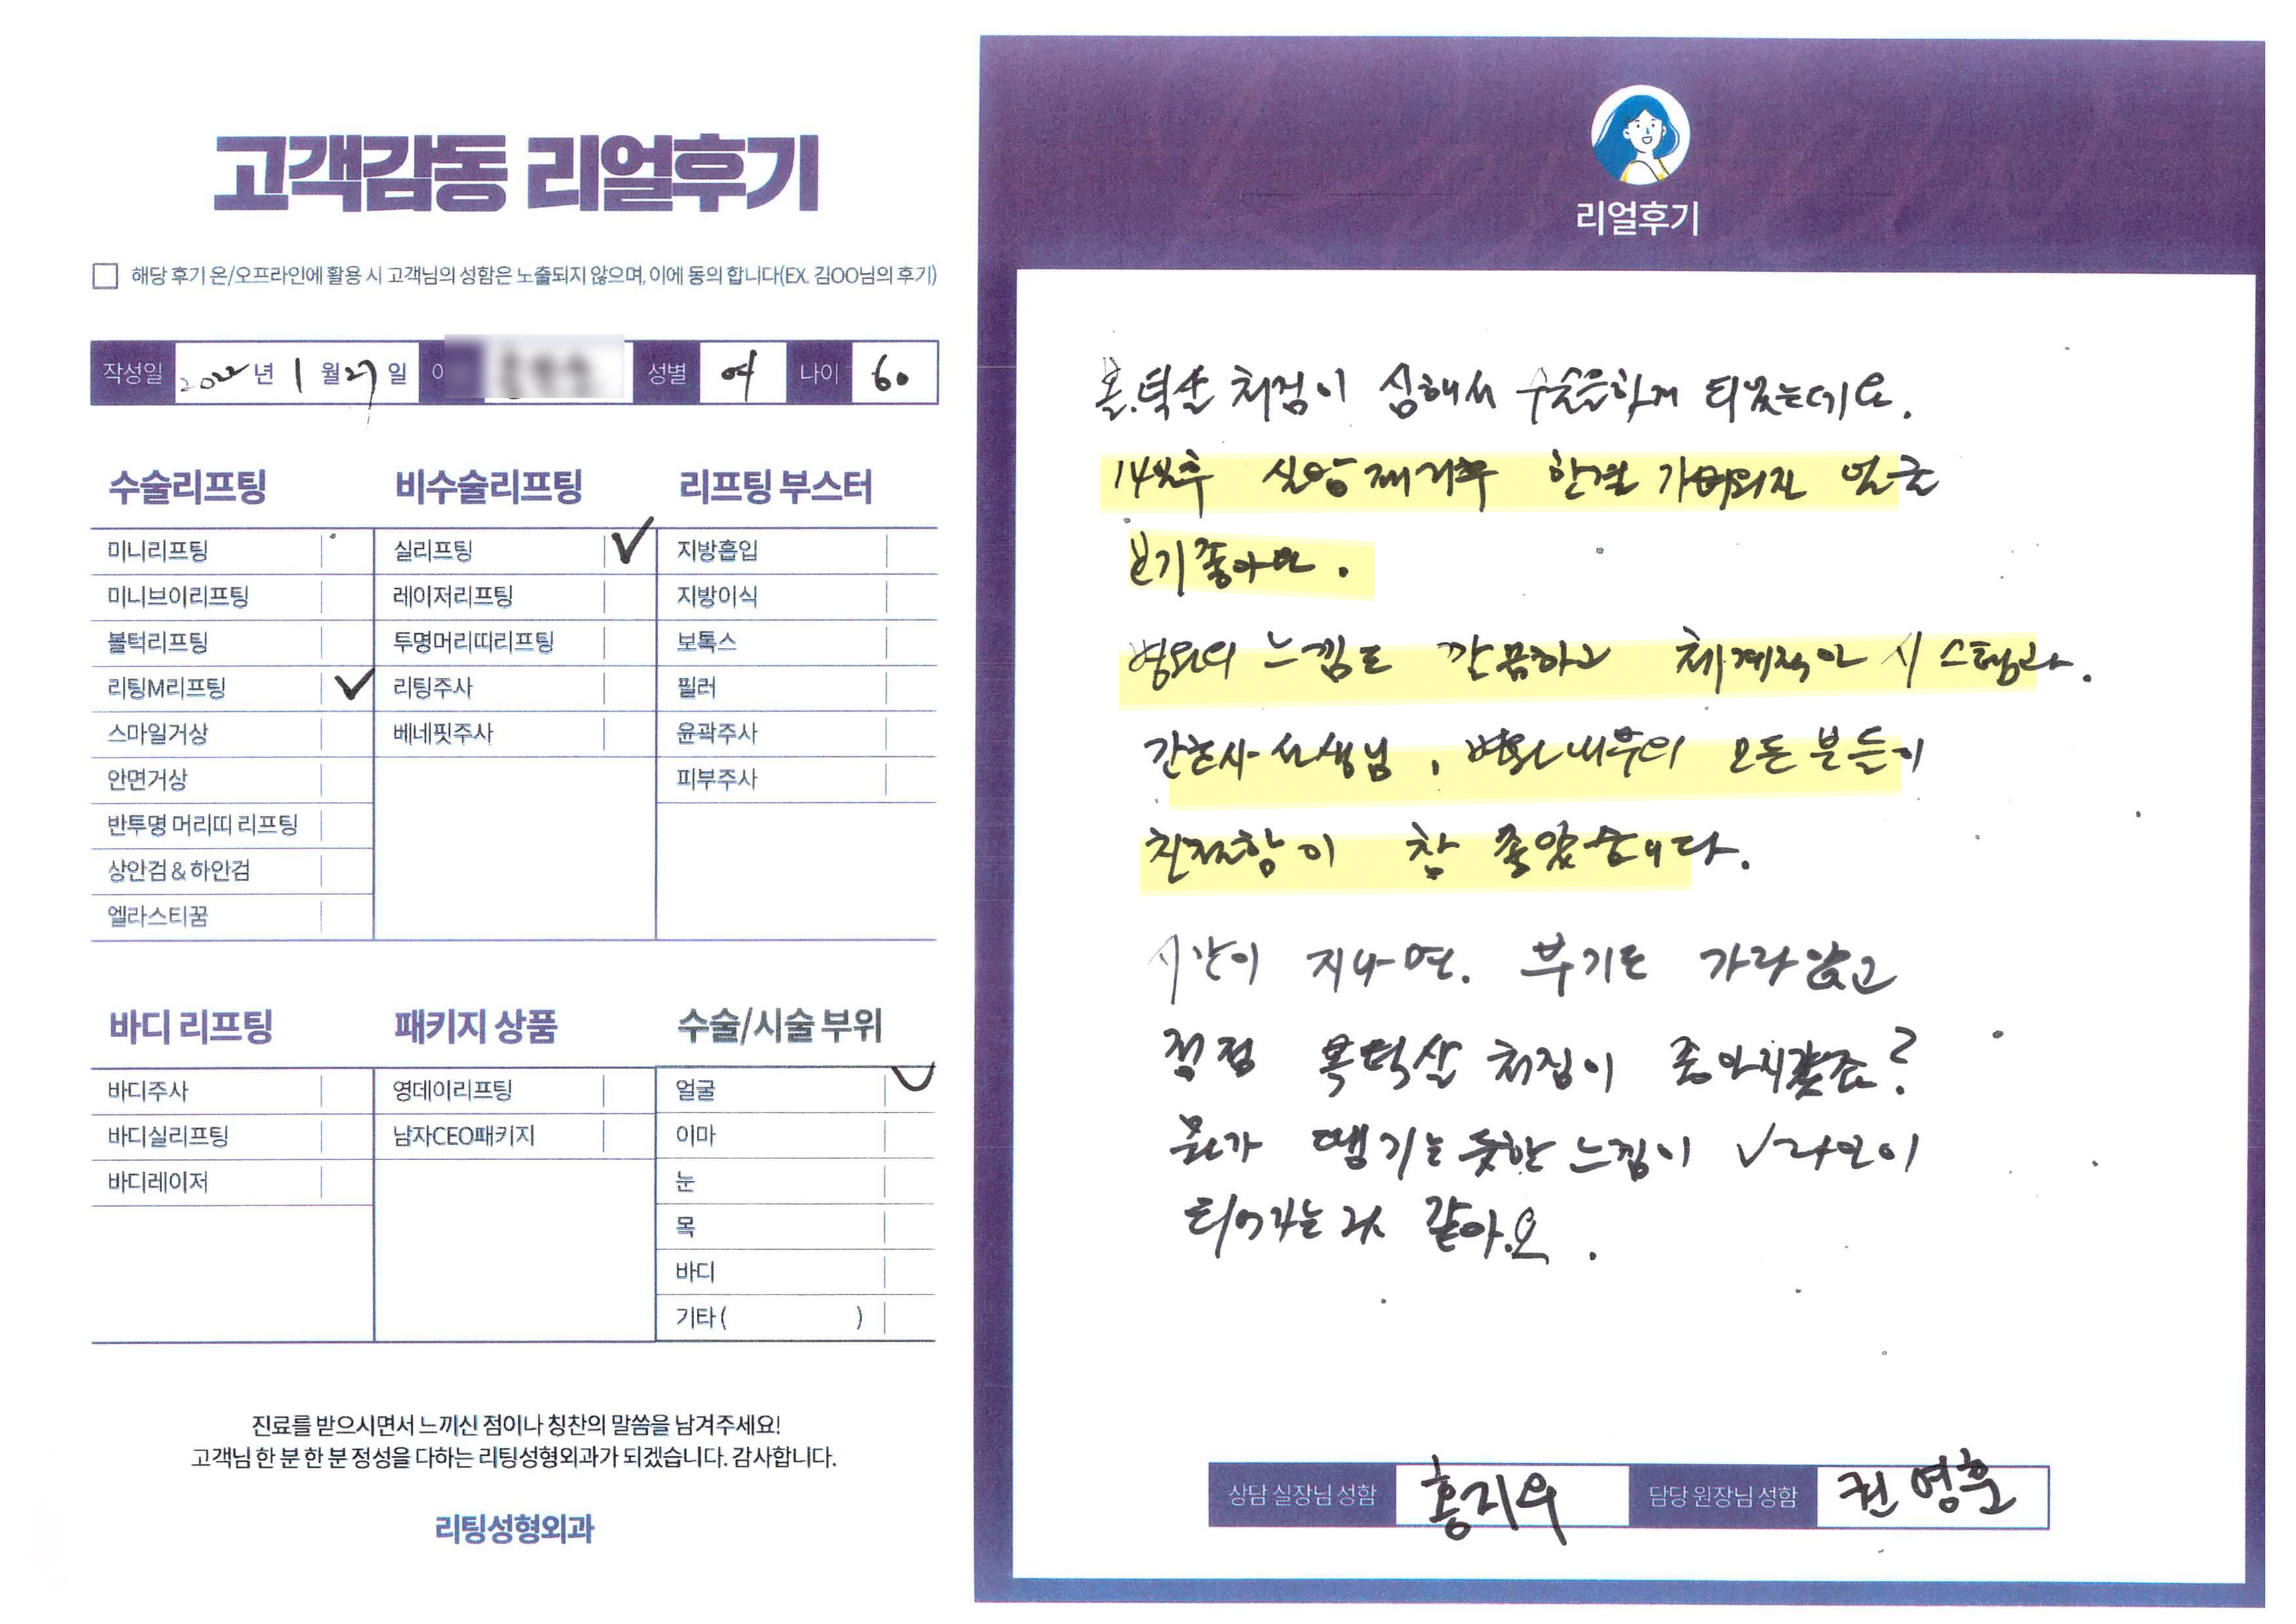 고객감동 리얼후기
해당 후기 온/오프라인에 활용 시 고객님의 성함은 노출되지 않으며, 이에 동의 합니다(EX. 김OO님의 후기)
작성일 2022년 1월 27일 성별 여 나이 60
수술리프팅
미니리프팅
미니브이리프팅
볼턱리프팅
리팅M리프팅 ✓
스마일거상
안면거상
반투명 머리띠 리프팅
상안검&하안검
엘라스티꿈
비수술리프팅
실리프팅 ✓
레이저리프팅
투명머리띠리프팅
리팅주사
베네핏주사
리프팅 부스터
지방흡입
지방이식
보톡스
필러
윤곽주사
피부주사
바디 리프팅
바디주사
바디실리프팅
바디레이저
패키지 상품
영데이리프팅
남자CEO패키지
수술/시술 부위
얼굴 ✓
이마
눈
목
바디
기타 ( )
진료를 받으시면서 느끼신 점이나 칭찬의 말씀을 남겨주세요!
고객님 한 분 한 분 정성을 다하는 리팅성형외과가 되겠습니다. 감사합니다.
리팅성형외과
리얼후기
볼.턱살 처짐이 심해서 수술을하게 되었는데요.
실밥제거후 한결 가벼워진 얼굴
보기좋아요.
병원의 느낌도 깔끔하고 체계적인 시스템과.
간호사 선생님, 병원내부의 모든 분들이
친절함이 참 좋았습니다.
시간이 지나면. 부기도 가라앉고
점점 볼턱살 처짐이 좋아지겠죠?
뭔가 땡기는 듯한 느낌이 V라인이
되어가는 것 같아.요.
상담 실장님 성함 홍지우 담당 원장님 성함 권영훈